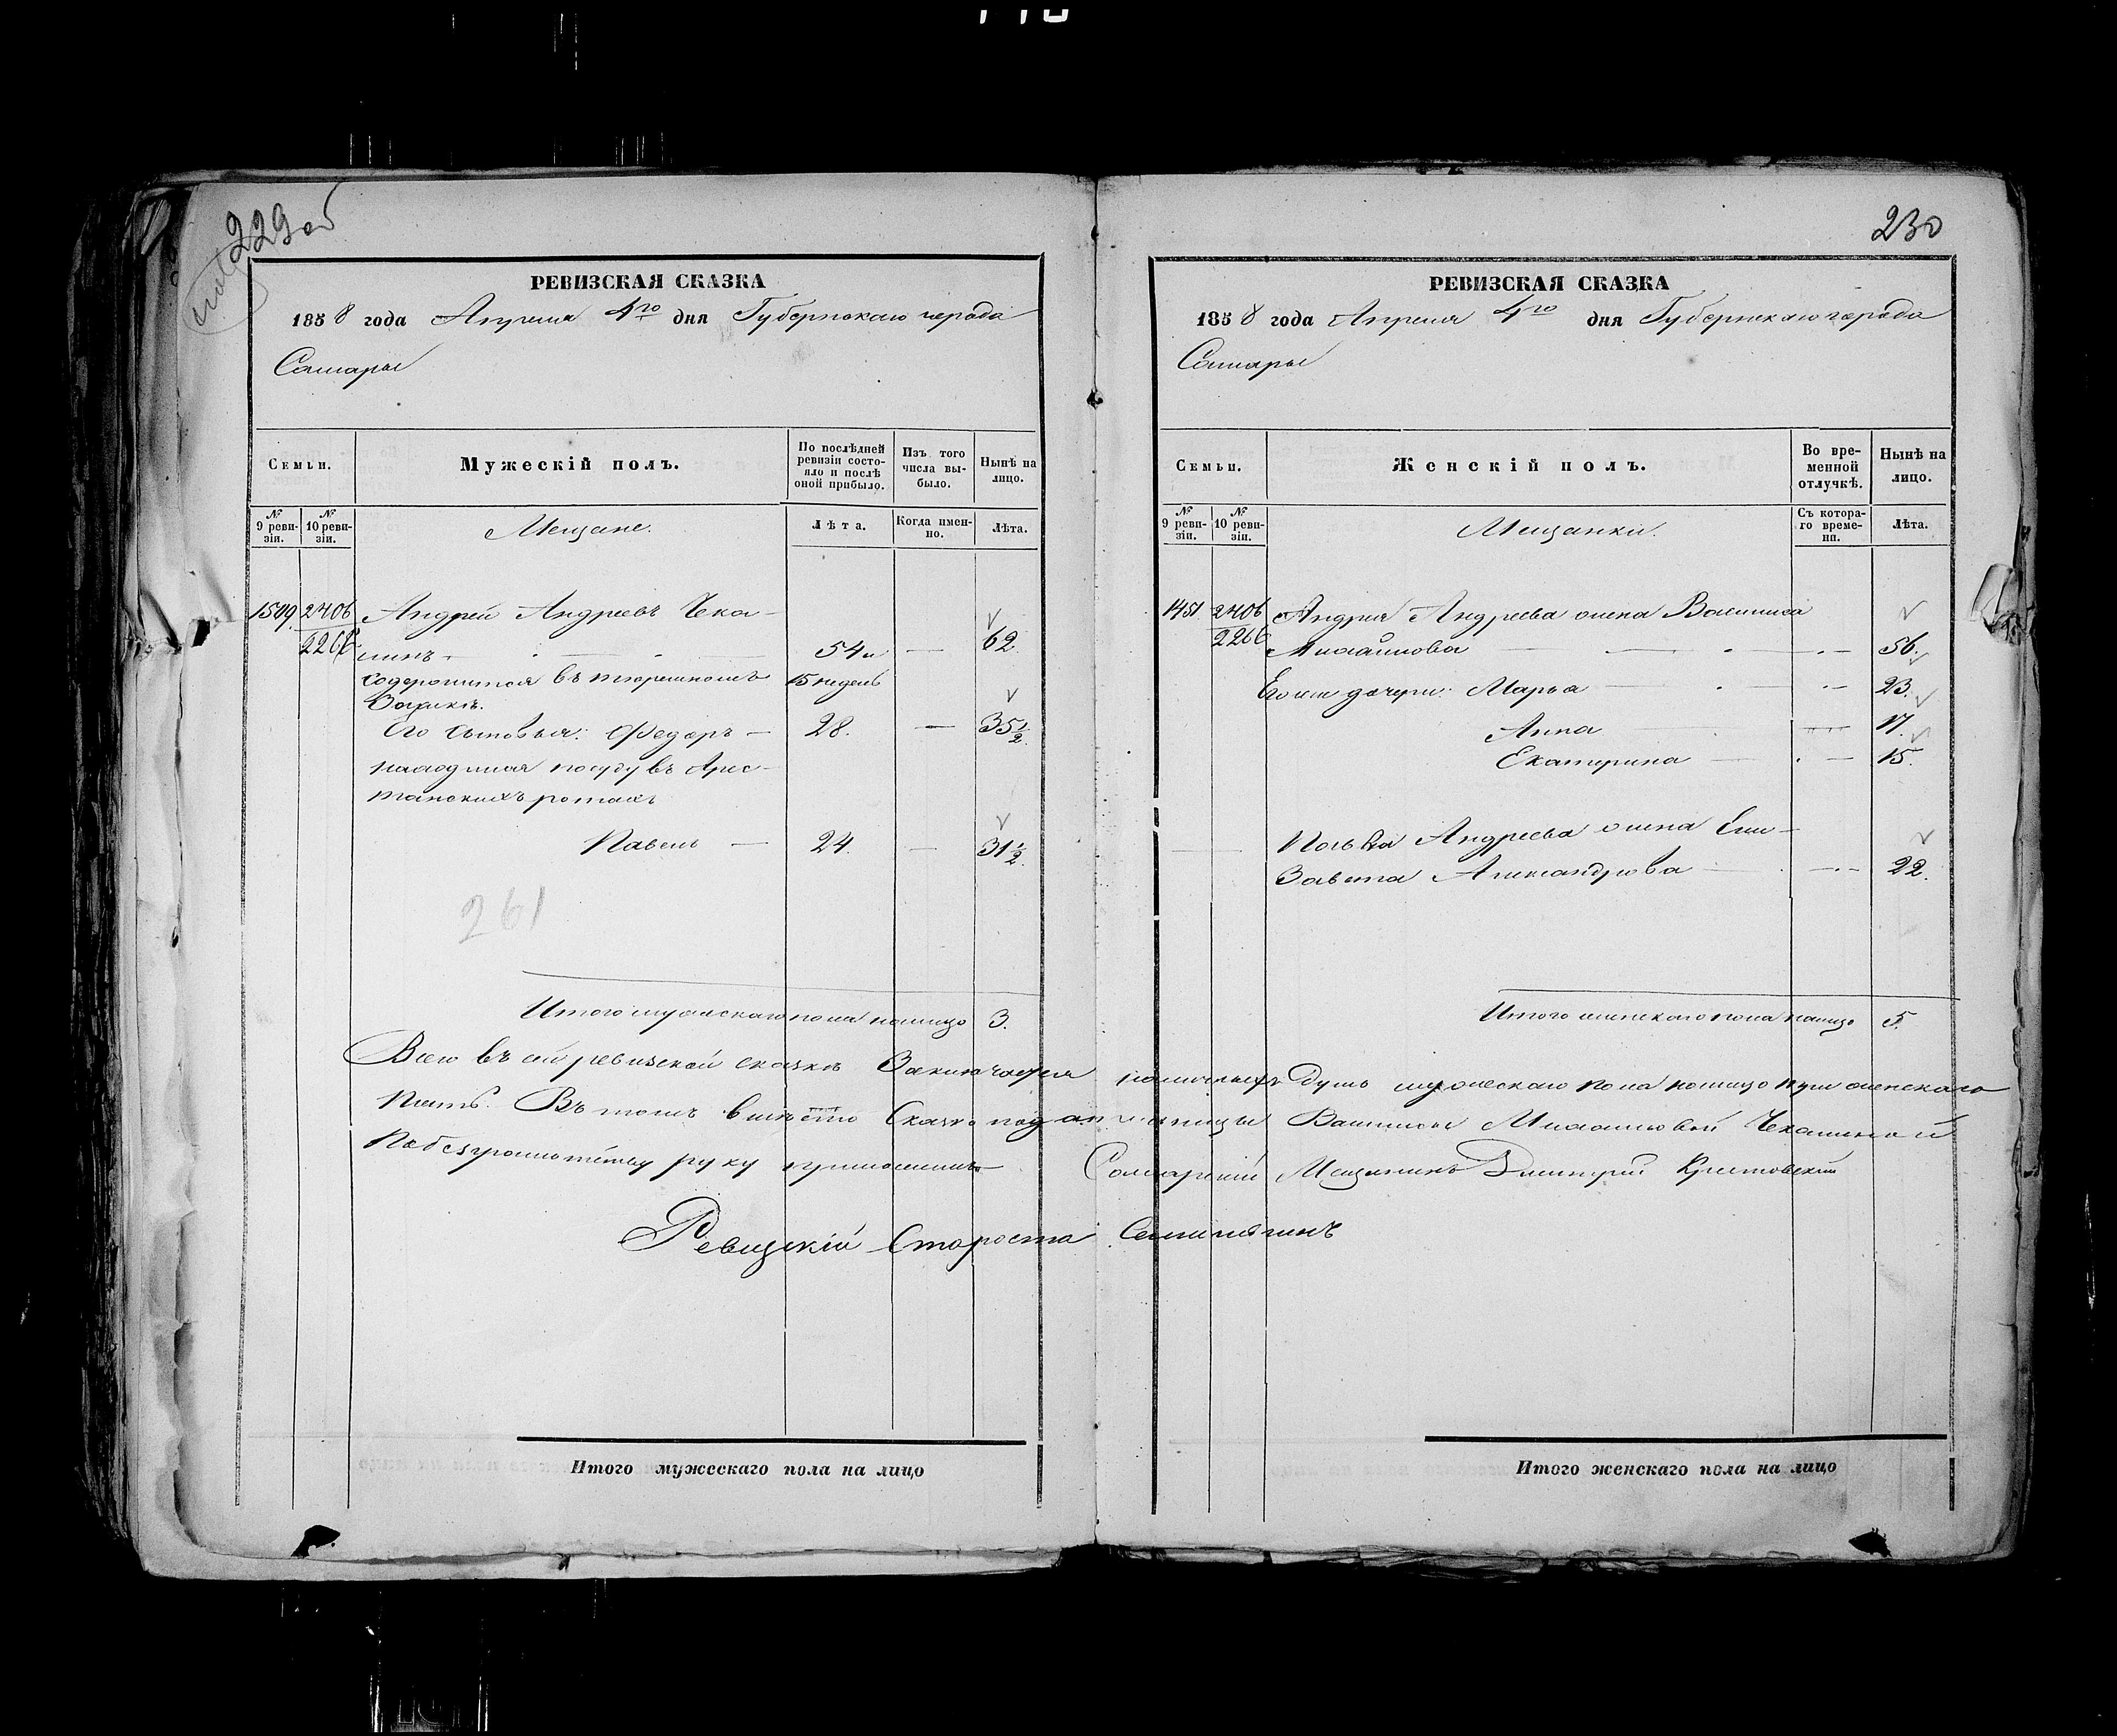 229 об
РЕВИЗСКАЯ СКАЗКА
1858 года Апреля 4го дня Губернскаго города
Самары
Семьи.
Мужескій полъ.
По послѣдней ревизіи состояло и послѣ оной прибыло.
Изъ того числа выбыло.
Нынѣ на лицо.
№ 9 ревизіи.
№ 10 ревизіи.
Мещане.
Лѣта.
Когда именно.
Лѣта.
2406 Андрей Андреевъ Чека-
2266 54 и — 62.
содержится въ тюремномъ 15 недель
Замкѣ.
Его сыновья: Федоръ — 28. — 35 1/2
находится по суду въ Арес-
танскихъ ротахъ
Павелъ — 24. — 31 1/2.
261
Итого мужескаго пола налицо 3.
230
РЕВИЗСКАЯ СКАЗКА
1858 года Апреля 4го дня Губернскаго города
Самары
Семьи.
Женскій полъ.
Во временной отлучкѣ.
Нынѣ на лицо.
№ 9 ревизіи.
№ 10 ревизіи.
Мещанки.
Съ котораго времени.
Лѣта.
1451 2406 Андрея Андреева жена Василиса
2266 56.
дочери: Марья 23.
Анна 17.
Екатерина 15.
Павла Андреева жена Ели-
завета Александрова 22.
Итого женскаго пола налицо 5.
Всего въ сей ревизской сказкѣ Заключается наличныхъ душъ мужескаго пола налицо три женскаго
Пять. Въ томъ Василисы Чекалиной
По безграмотству руку приложилъ Самарскій Мещанинъ Дмитрій
Ревизскій Староста
Итого мужескаго пола на лицо
Итого женскаго пола на лицо